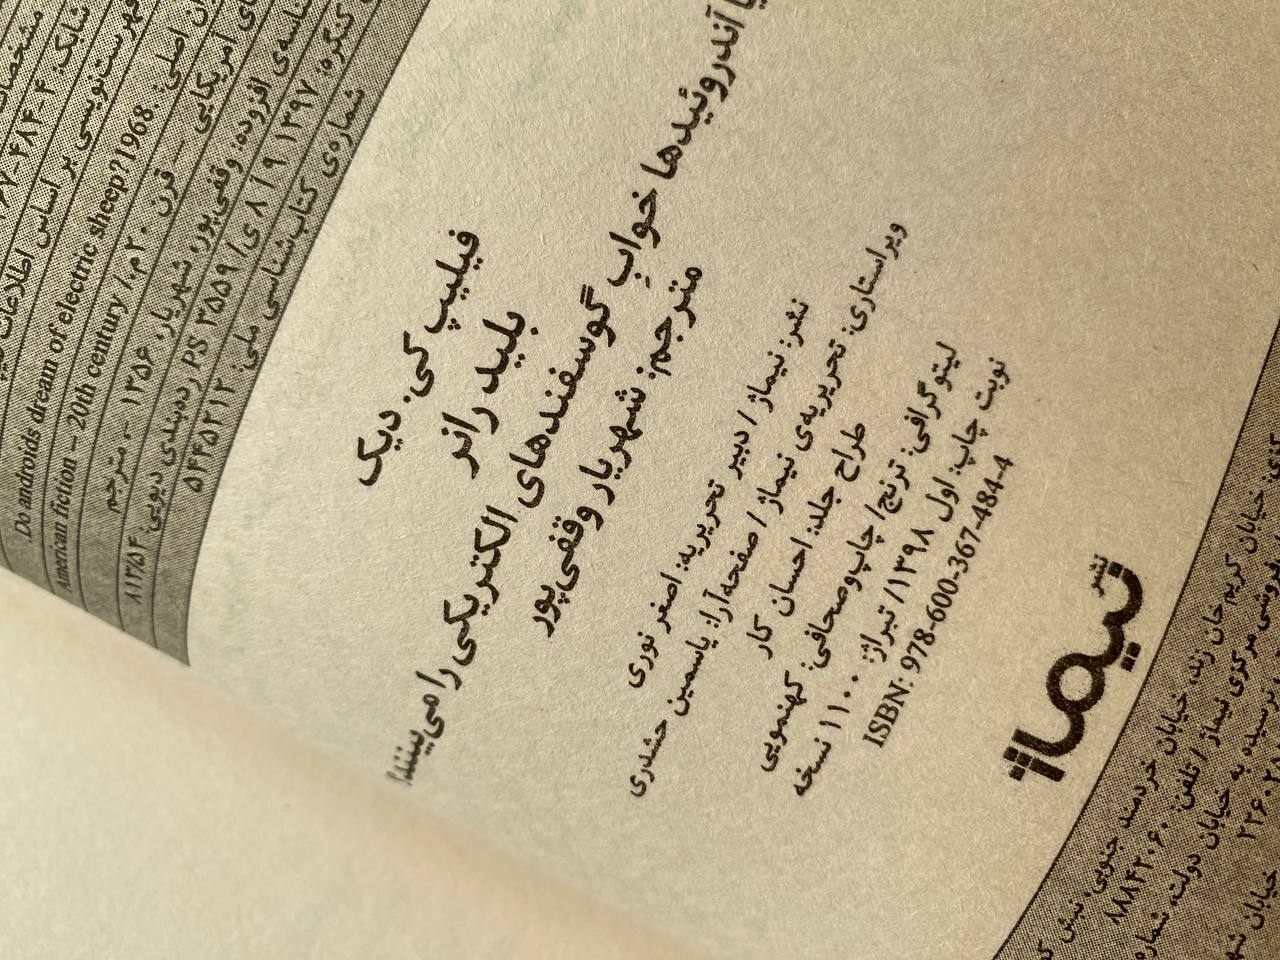 مشخصات
شابک: ۴-۴۸۴-۳۶۷
فهرست‌نویسی بر اساس اطلاعات
اصلی: .Do androids dream of electric sheep?1968
آمریکایی — قرن ۲۰م./ American fiction – 20th century
شناسه‌ی افزوده: وقفی‌پور، شهریار، ۱۳۵۶ -، مترجم
کنگره: ۱۳۹۷ ۸۱۹ی/ PS ۳۵۵۹ رده‌بندی دیویی: ۸۱۳/۵۴
شماره‌ی کتاب‌شناسی ملی: ۵۴۴۵۲۱۲
فیلیپ کی. دیک
بلید رانر
آندروئیدها خوابِ گوسفندهای الکتریکی را می‌بینند؟
مترجم: شهریار وقفی‌پور
نشر: نیماژ / دبیر تحریریه: اصغر نوری
ویراستاری: تحریریه‌ی نیماژ / صفحه‌آرا: یاسمین حشدری
طراح جلد: احسان کار
لیتوگرافی: ترنج/ چاپ‌وصحافی: کهنمویی
نوبت چاپ: اول ۱۳۹۸/ تیراژ: ۱۱۰۰ نسخه
ISBN: 978-600-367-484-4
نشر
نیماژ
خیابان کریم‌خان زند، خیابان خردمند جنوبی، نبش
فروشی مرکزی نیماژ / تلفن: ۸۸۸۴۲۰۶۰
نرسیده به خیابان دولت، شماره
خیابان